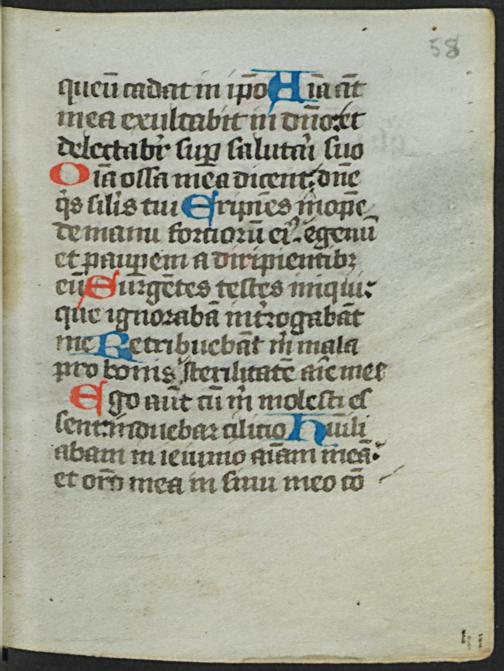 58
queū cadat in ip̄o Aīa āt
mea exultabit in dn̄o: et
delectabr̄ sup̱ salutari suo
Oīa ossa mea dicent: dn̄e
q̇s sil̄is tui Eripiēs īnopē
de manu fortiorū ei⁹. egenū
et paup̱em a diripientibꝫ
eū Surgētes testes iniqui:
que ignorabā int̄rogabāt
me Retribuebāt m̄ mala
pro bonis sterilitatē aīe mee
Ego aūt cū m̄ molesti eē
sent: induebar cilicio Humili
abam in ieiunio aīam meā:
et orō mea in sinu meo cō